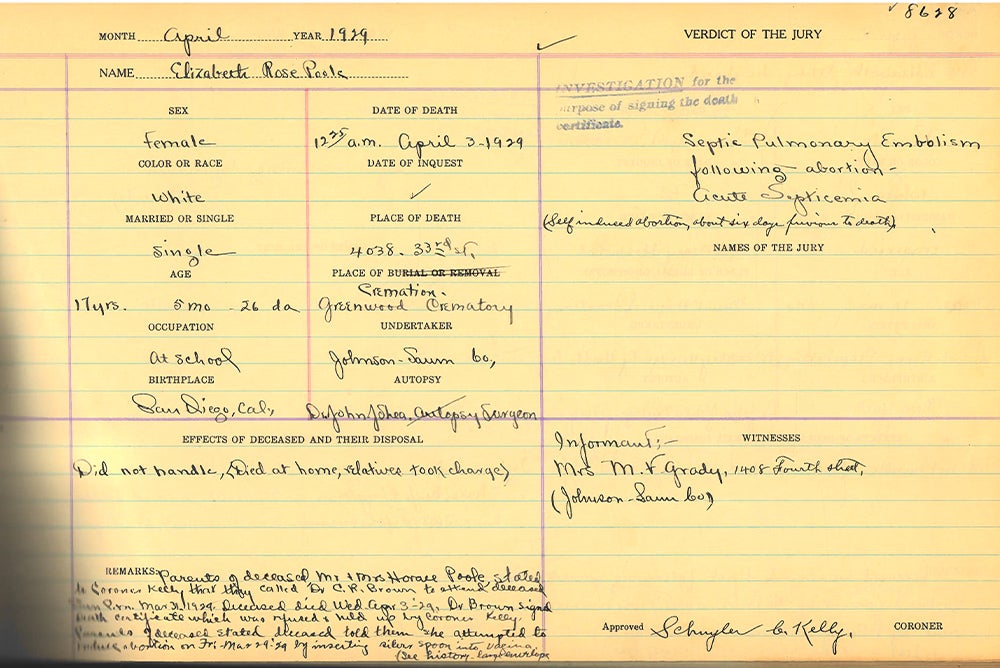 8628
MONTH April YEAR 1929
VERDICT OF THE JURY
NAME Elizabeth Rose Poole
INVESTIGATION for the
purpose of signing the death
certificate.
SEX
Female
COLOR OR RACE
White
MARRIED OR SINGLE
Single
AGE
17yrs. 5 mo - 26 da
OCCUPATION
At school
BIRTHPLACE
San Diego, Cal,
DATE OF DEATH
12 25 a.m. April 3-1929
DATE OF INQUEST
✓
PLACE OF DEATH
4038. 33rd St.
PLACE OF BURIAL OR REMOVAL
Cremation.
Greenwood Crematory
UNDERTAKER
Johnson-Saum Co,
AUTOPSY
Dr John J Shea, Autopsy Surgeon
Septic Pulmonary Embolism
following abortion-
Acute Septicemia
(Self induced abortion, about six days previous to death)
NAMES OF THE JURY
EFFECTS OF DECEASED AND THEIR DISPOSAL
Did not handle, (Died at home, relatives took charge)
Informant;- WITNESSES
Mrs M. F Grady, 1408 Fourth street,
(Johnson-Saum Co)
REMARKS: Parents of deceased Mr & Mrs Horace Poole, stated
to Coroner Kelly that they called Dr C.R. Brown to attend deceased
P.m. Mar 31, 1929. Deceased died Wed Apr 3-29, Dr Brown signed
death certificate which was refused & held up by Coroner Kelly.
Parents of deceased stated deceased told them she attempted to
induce abortion on Fri-Mar 29-29 by inserting silver spoon into vagina
(See history - envelope
Approved Schuyler C. Kelly, CORONER